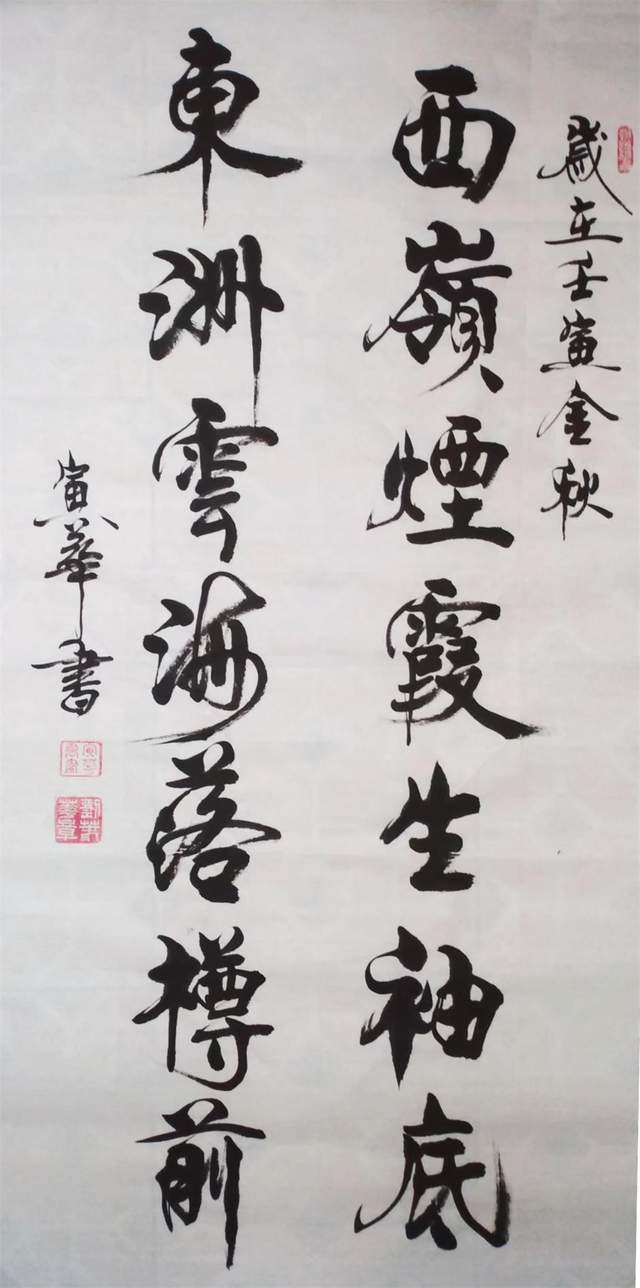 歲在壬寅金秋
西嶺煙霞生袖底
東洲雲海落樽前
寅華書